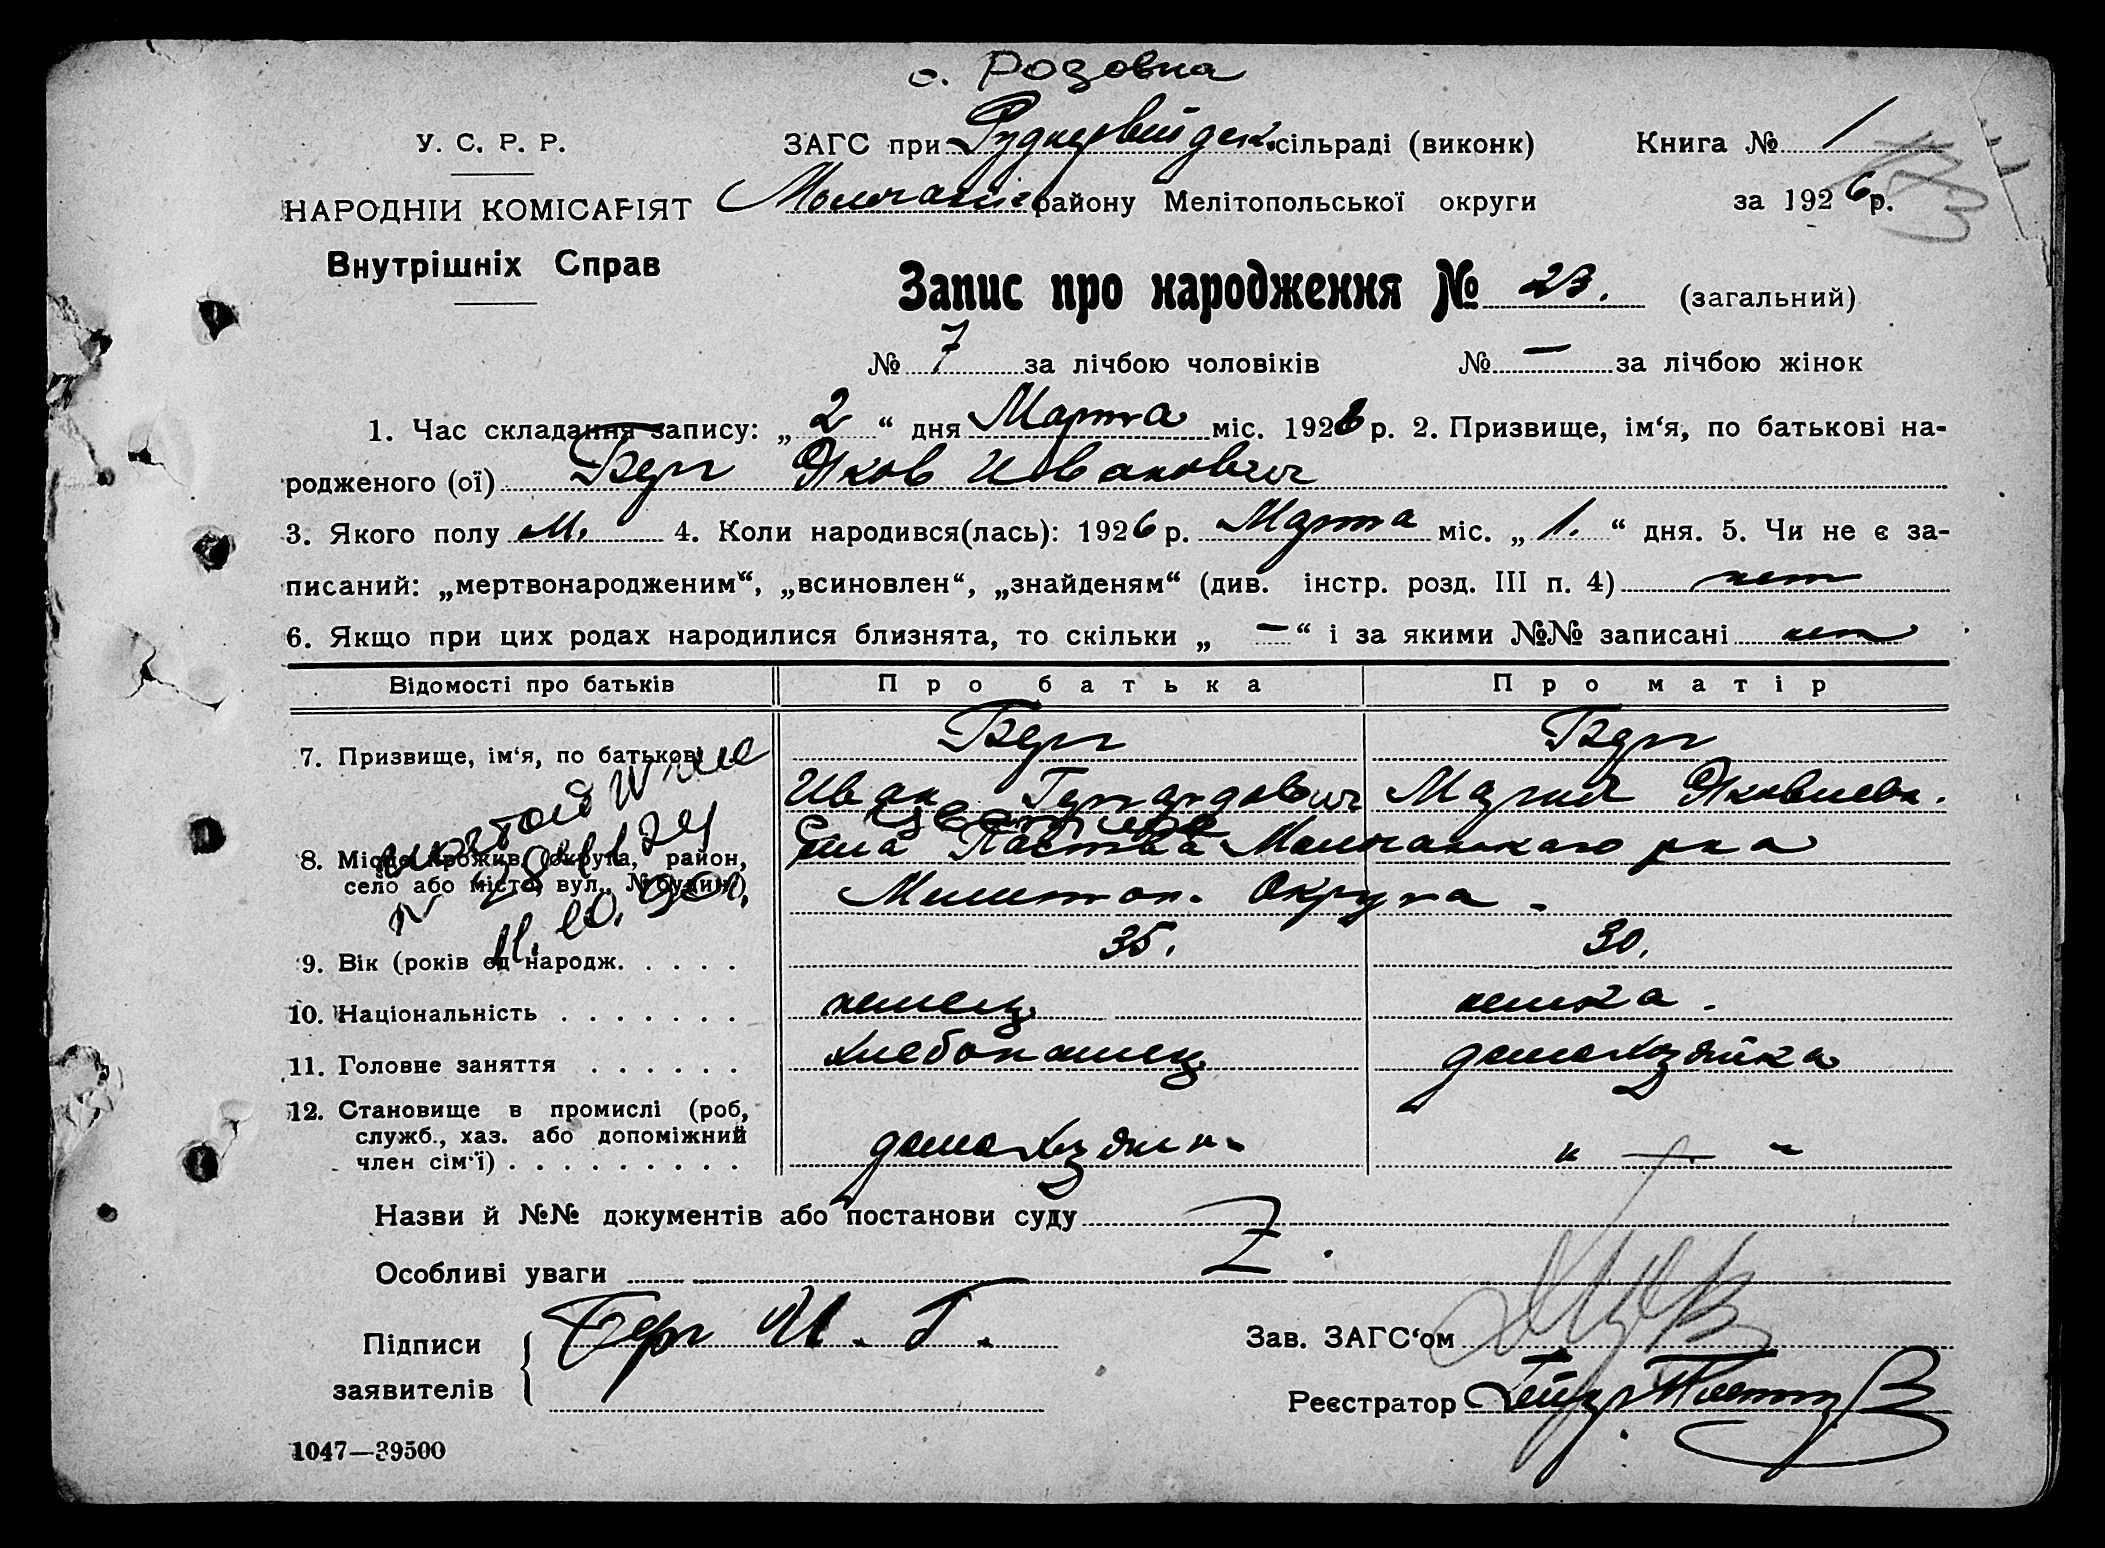 с. Розовка
У. С. Р. Р.
ЗАГС при сільраді (виконк)
Книга № 1
НАРОДНІЙ КОМІСАРІЯТ
району Мелітопольської округи
за 1926 р.
Внутрішніх Справ
Запис про народження № 23. (загальний)
№ 7 за лічбою чоловіків № — за лічбою жінок
1. Час складання запису: „ 2 “ дня Марта міс. 1926 р. 2. Призвище, ім‘я, по батькові на-
родженого (ої) Берг Яков Иванович
3. Якого полу м. 4. Коли народився(лась): 1926 р. Марта міс. „ 1. “ дня. 5. Чи не є за-
писаний: „мертвонародженим“, „всиновлен“, „знайденям“ (див. інстр. розд. III п. 4) нет
6. Якщо при цих родах народилися близнята, то скільки „ — “ і за якими №№ записані нет
Відомості про батьків Про батька Про матір
7. Призвище, ім‘я, по батькові Берг Берг
Иван Мария Яковлевн.
8. Місце прожив. (округа, район, Молочанскаго р на
село або місто, вул., № будинк.) Мелитоп. Округа -
11. 10. 90г.
9. Вік (років од народж. . . . . 35. 30.
10. Національність . . . . . . . немец немка .
11. Головне заняття . . . . . . хлебопашец домохозяйка
12. Становище в промислі (роб,
служб., хаз. або допоміжний
член сім‘ї) . . . . . . . . . домохозяин " — "
Назви й №№ документів або постанови суду
Z
Особливі уваги
Підписи
заявителів
Берг И. Г.
Зав. ЗАГС‘ом
Реєстратор
1047—39500